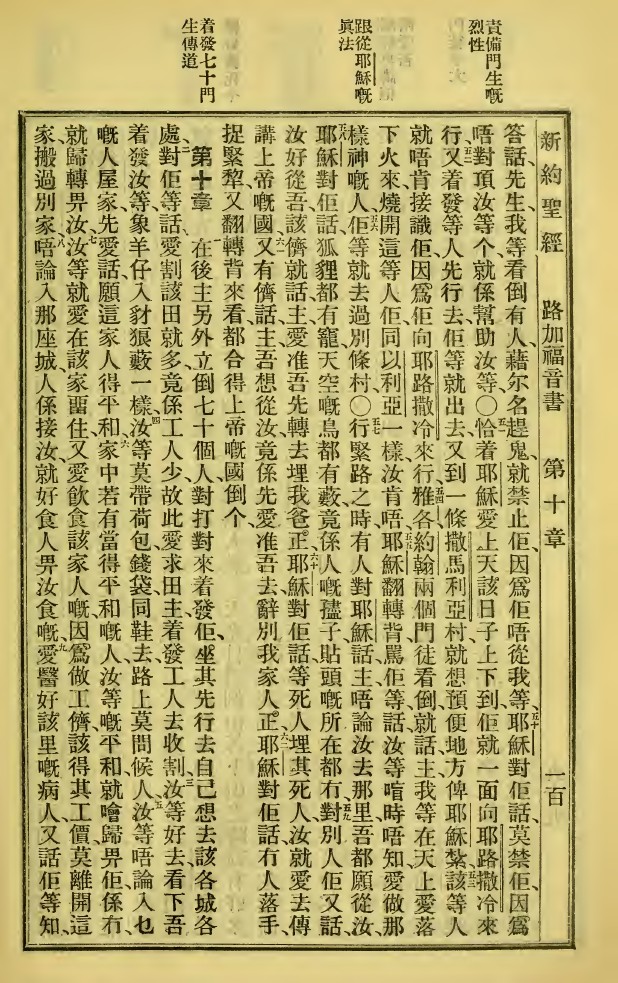 新約聖經 路加福音書 第十章 一百
責備門生嘅
烈性
跟從耶穌嘅
眞法
着發七十門
生傳道
答話、先生、我等看倒有人藉尔名趕鬼、就禁止佢、因爲佢唔從我等、五十耶穌對佢話、莫禁佢、因爲
唔對頂汝等个、就係幫助汝等、〇五一恰着耶穌愛上天該日子上下到、佢就一面向耶路撒冷來
行、五二又着發等人先行去、佢等就出去、又到一條撒馬利亞村、就想預便地方俾耶穌、紮五三該等人
就唔肯接識佢、因爲佢向耶路撒冷來行、五四雅各約翰兩個門徒看倒、就話、主、我等在天上愛落
下火來、燒開這等人、佢同以利亞一樣、汝肯唔、五五耶穌翻轉背罵佢等話、汝等喑時唔知愛做那
樣神嘅人、五六佢等就去過別條村、〇五七行緊路之時、有人對耶穌話、主、唔論汝去那里、吾都願從汝、
五八耶穌對佢話、狐貍都有竉、天空嘅鳥都有藪、竟係人嘅𡥧子貼頭嘅所在都冇、五九對別人佢又話、
汝好從吾、該儕就話、主、愛准吾先轉去埋我爸正、六十耶穌對佢話、等死人埋其死人、汝就愛去傳
講上帝嘅國、六一又有儕話、主、吾想從汝、竟係先愛准吾去辭別我家人正、六二耶穌對佢話、冇人落手
捉緊犂、又翻轉背來看、都合得上帝嘅國倒个、
第十章 一在後、主另外立倒七十個人、對打對來着發佢、坐其先行去自己想去該各城各
處、二對佢等話、愛割該田就多、竟係工人少、故此愛求田主、着發工人去收割、三汝等好去、看下、吾
着發汝等、象羊仔入豺狼藪一樣、四汝等莫帶荷包錢袋同鞋去、路上莫問候人、五汝等唔論入乜
嘅人屋家、先愛話、願這家人得平和、六家中若有當得平和嘅人、汝等嘅平和、就噲歸畀佢、係冇、
就歸轉畀汝、七汝等就愛在該家畱住、又愛飲食該家人嘅、因爲做工儕該得其工價、莫離開這
家搬過別家、八唔論入那座城、人係接汝、就好食人畀汝食嘅、九愛醫好該里嘅病人、又話佢等知、